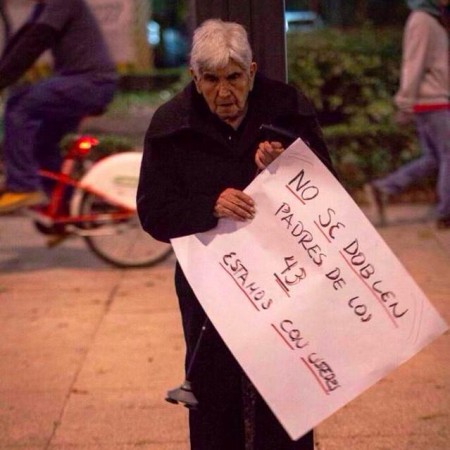 NO SE DOBLEN
PADRES DE LOS
43
ESTAMOS CON USTEDES